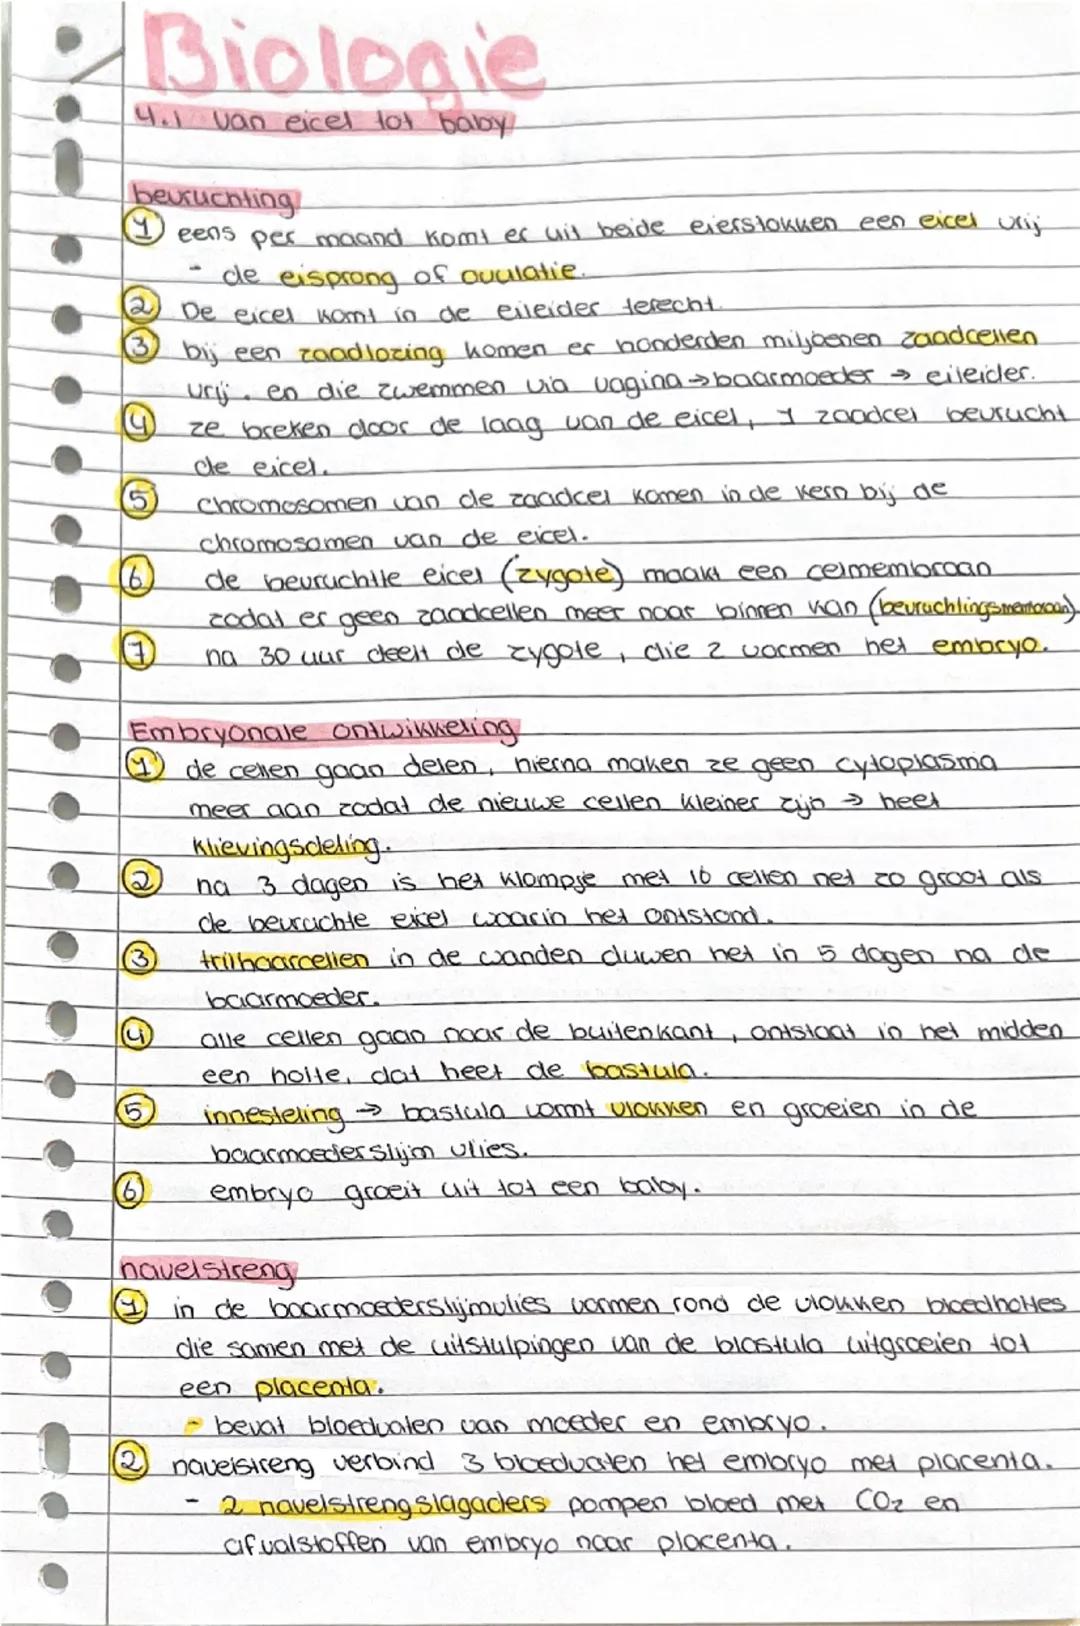 Biologie
4.1 van eicel tot baby
bevruchting
1 eens per maand komt er uit beide eierstokken een eicel vrij
- de eisprong of ovulatie.
2 De eicel komt in de eileider terecht.
3 bij een zaadlozing komen er honderden miljoenen zaadcellen
vrij. en die zwemmen via vagina → baarmoeder → eileider.
4 ze breken door de laag van de eicel, 1 zaadcel bevrucht
de eicel.
5 chromosomen van de zaadcel komen in de kern bij de
chromosomen van de eicel.
6 de bevruchtte eicel (zygote) maakt een celmembraan
zodat er geen zaadcellen meer naar binnen kan (bevruchtingsmembraan).
7 na 30 uur deelt de zygote, die 2 vormen het embryo.
Embryonale ontwikkeling
1 de cellen gaan delen, hierna maken ze geen cytoplasma
meer aan zodat de nieuwe cellen kleiner zijn → heet
klievingsdeling.
2 na 3 dagen is het klompje met 16 cellen net zo groot als
de bevruchte eicel waarin het ontstond.
3 trilhaarcellen in de wanden duwen het in 5 dagen na de
baarmoeder.
4 alle cellen gaan naar de buitenkant, ontstaat in het midden
een holte, dat heet de bastula.
5 innesteling → bastula vormt vlokken en groeien in de
baarmoederslijm vlies.
6 embryo groeit uit tot een baby.
navelstreng
1 in de baarmoederslijmvlies vormen rond de vlokken bloedholtes
die samen met de uitstulpingen van de blastula uitgroeien tot
een placenta.
- bevat bloedvaten van moeder en embryo.
2 navelstreng verbind 3 bloedvaten het embryo met placenta.
- 2 navelstrengslagaders pompen bloed met CO2 en
afvalstoffen van embryo naar placenta.